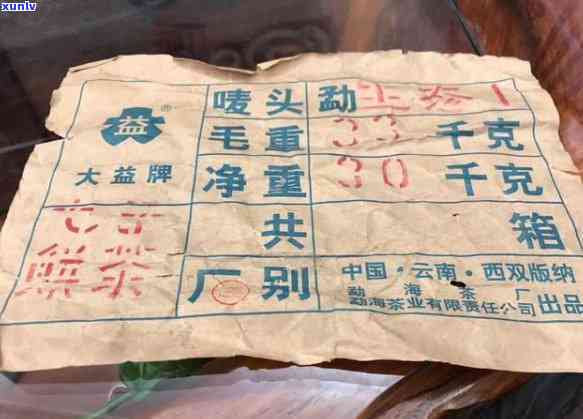 xunlv
益®
大益牌
唛头 勐
毛重 33 千克
净重 30 千克
七子
餅茶
共 箱
厂别
中国·云南·西双版纳
勐海茶厂
勐海茶业有限责任公司 出品